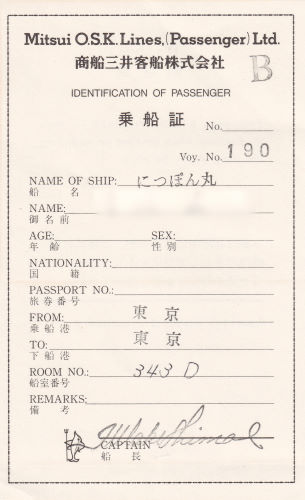 Mitsui O.S.K. Lines, (Passenger) Ltd.
商船三井客船株式会社
B
IDENTIFICATION OF PASSENGER
乗船証
No.
Voy. No. 190
NAME OF SHIP: にっぽん丸
船名
NAME:
御名前
AGE: SEX:
年齢 性別
NATIONALITY:
国籍
PASSPORT NO.:
旅券番号
FROM: 東京
乗船港
TO: 東京
下船港
ROOM NO.: 343 D
船室番号
REMARKS:
備考
CAPTAIN
船長